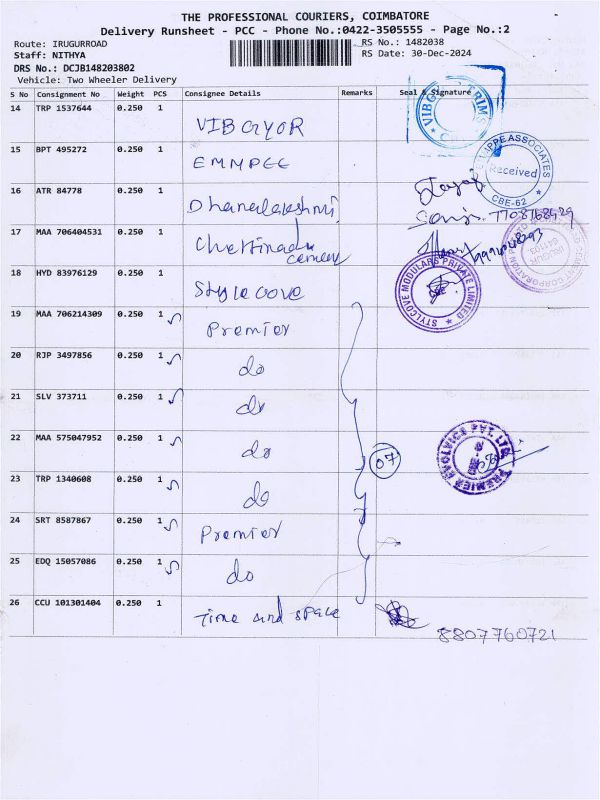 THE PROFESSIONAL COURIERS, COIMBATORE
Delivery Runsheet - PCC - Phone No.:0422-3505555 - Page No.:2
Route: IRUGURROAD
RS No.: 1482038
Staff: NITHYA
RS Date: 30-Dec-2024
DRS No.: DCJB148203802
Vehicle: Two Wheeler Delivery
S No Consignment No Weight PCS Consignee Details Remarks Seal & Signature
14 TRP 1537644 0.250 1 VIBGYOR
15 BPT 495272 0.250 1 EMMPEE
ASSOCIATES
Received
CBE-62
16 ATR 84778 0.250 1 Dhanalakshmi
7708168929
17 MAA 706404531 0.250 1 Chettinadu
cement
18 HYD 83976129 0.250 1 Stylecove
STYLCOVE MODULARS PRIVATE LIMITED
CBE
19 MAA 706214309 0.250 1 Premier
20 RJP 3497856 0.250 1 do
21 SLV 373711 0.250 1 do
22 MAA 575047952 0.250 1 do
07
PREMIER EVOLVICS PVT LTD
23 TRP 1340608 0.250 1 do
24 SRT 8587867 0.250 1 Premier
25 EDQ 15057086 0.250 1 do
26 CCU 101301404 0.250 1 Time and space
8807760721